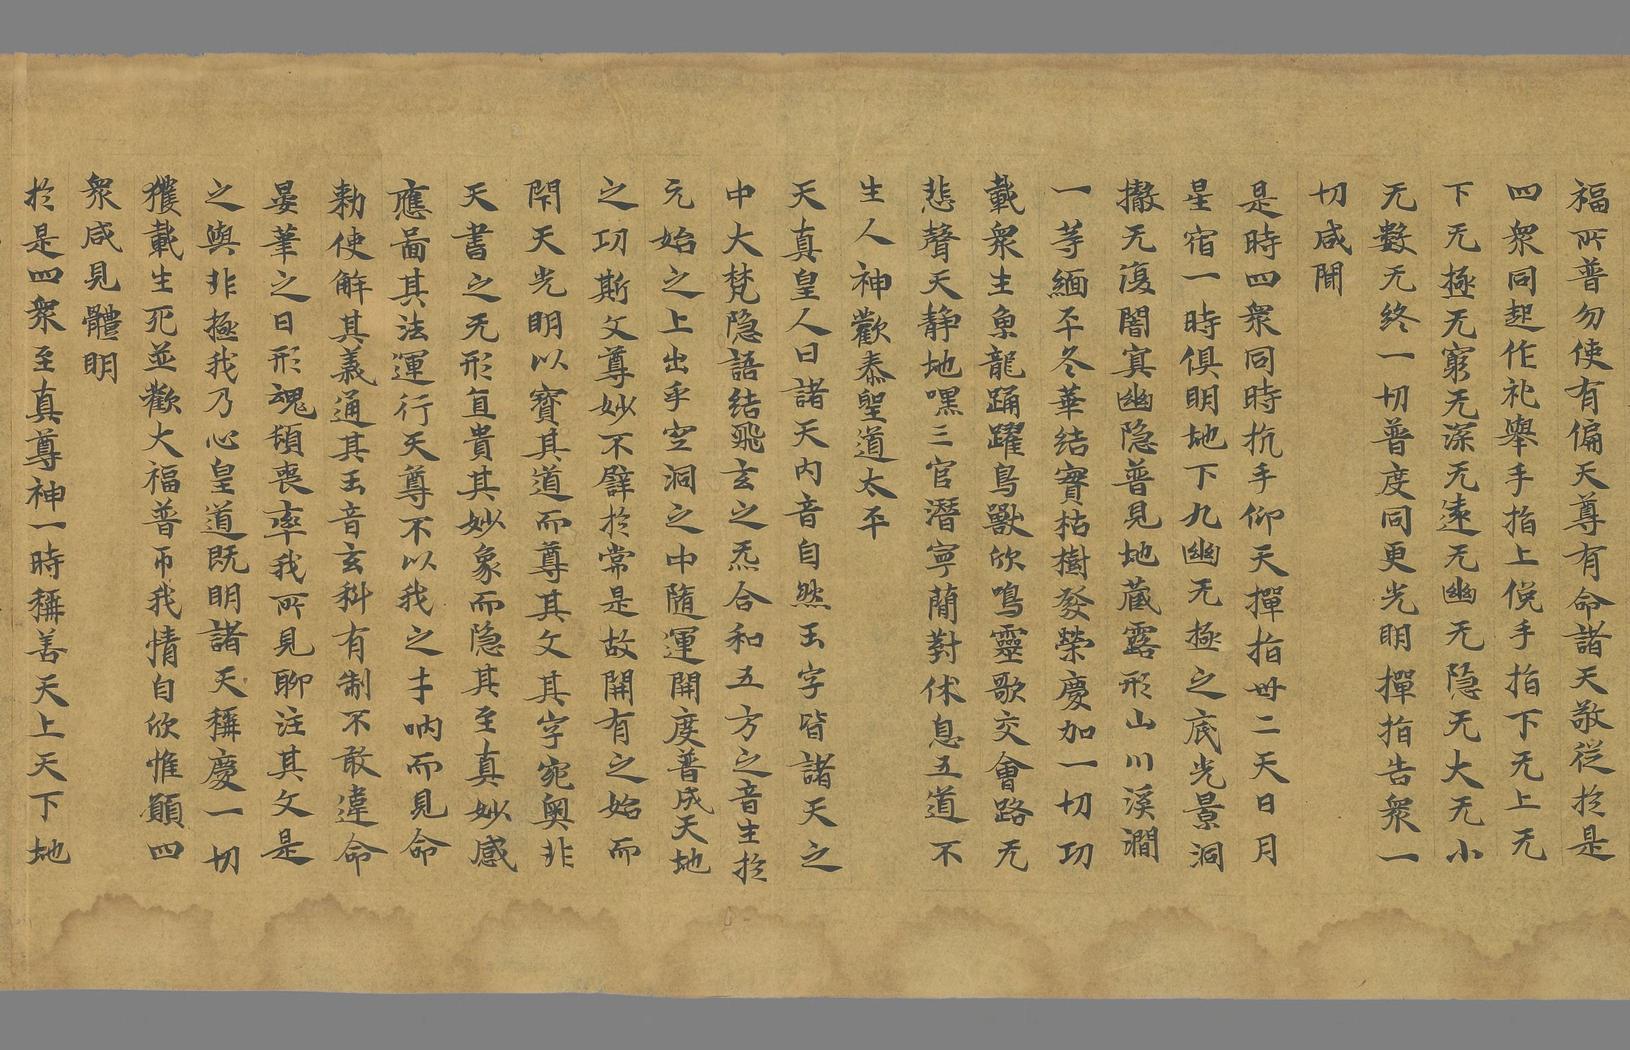 福所普勿使有偏天尊有命諸天敬從於是
四衆同起作礼舉手指上俛手指下无上无
下无極无窮无深无遠无幽无隐无大无小
无數无終一切普度同更光明撣指告衆一
切咸聞
是時四衆同時抗手仰天撣指卅二天日月
星宿一時俱明地下九幽无極之底光景洞
撤无復闇冥幽隐普見地藏露形山川溪澗
一等緬平冬華結實枯樹發榮慶加一切功
載衆生魚龍踊躍鳥獸欣鳴靈歌交會路无
悲聲天静地嘿三官潜寧蕳對休息五道不
生人神歡泰聖道太平
天真皇人曰諸天内音自然玉字皆諸天之
中大梵隐語結飛玄之炁合和五方之音生於
元始之上出乎空洞之中隨運開度普成天地
之功斯文尊妙不譬於常是故開有之始而
閇天光明以寳其道而尊其文其字宛奥非
天書之无形宜貴其妙象而隐其至真妙感
應啚其法運行天尊不以我之才呐而見命
勑使解其義通其玉音玄科有制不敢違命
晏筆之日形魂頓喪率我所見聊注其文是
之與非極我乃心皇道既明諸天稱慶一切
獲載生死並歡大福普帀我情自欣惟願四
衆咸見體明
於是四衆至真尊神一時稱善天上天下地